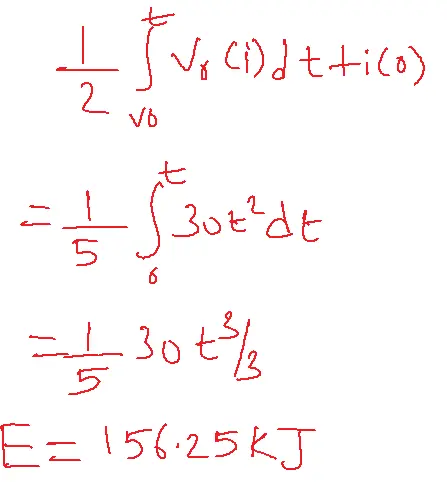 1/2 ∫_{v0}^{t} V_0 (i) dt + i(0)
= 1/5 ∫_0^t 30t² dt
= 1/5 30 t³/3
E = 156.25KJ